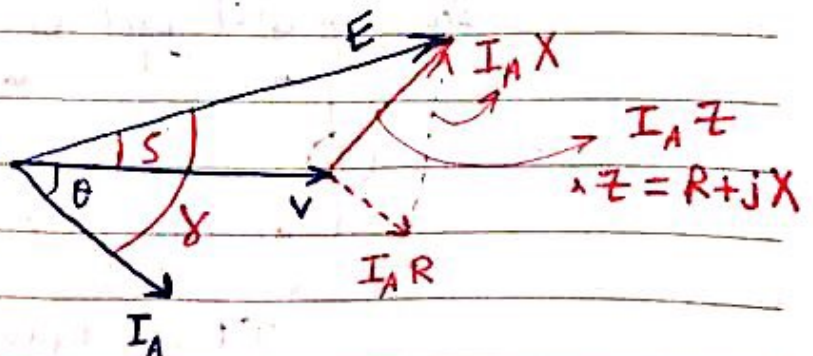 E
I_A X
I_A Z
Z = R+jX
δ
θ
V
γ
I_A R
I_A